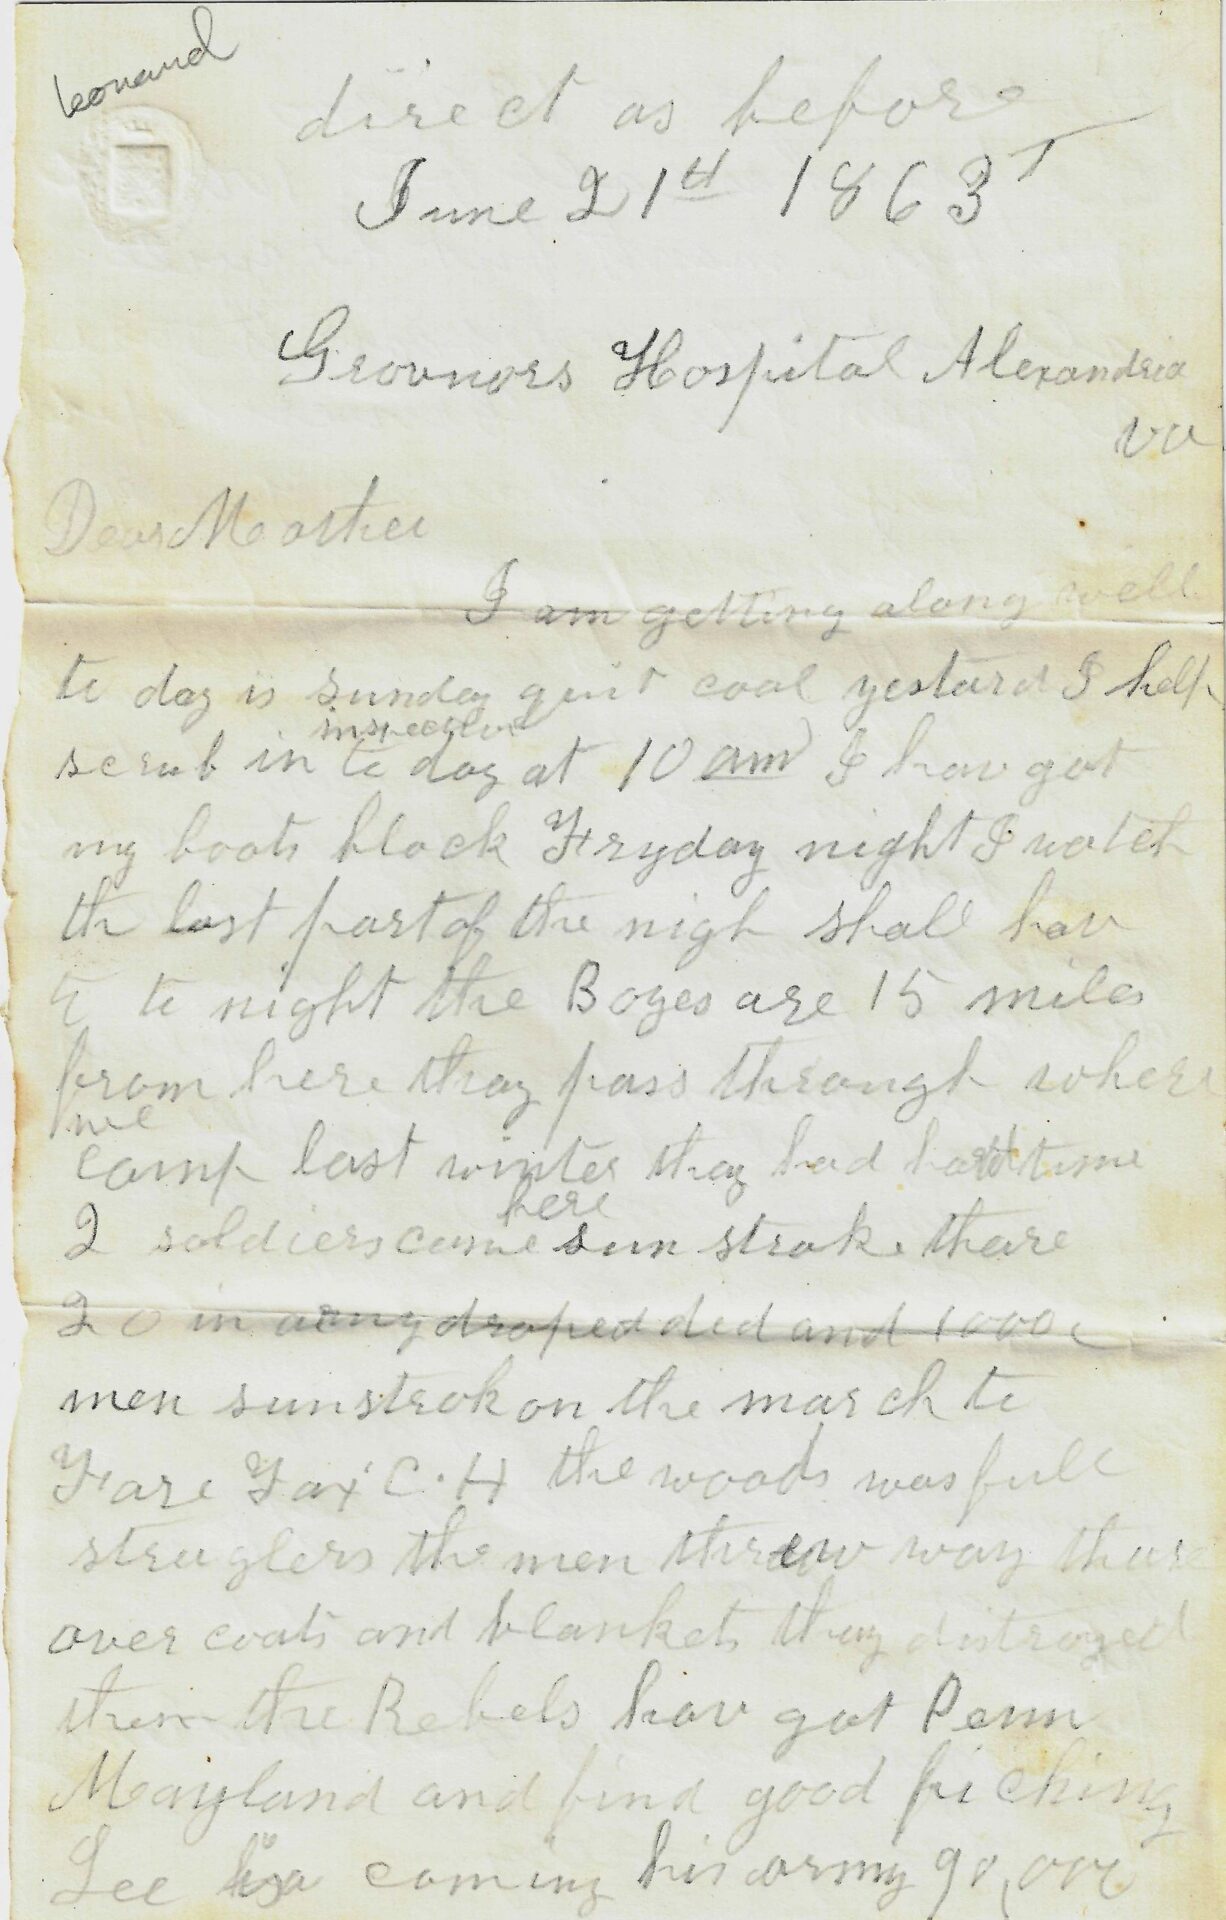 Leonard
direct as before
June 21st 1863
Grovnors Hospital Alexandria
va
Dear Mother
I am getting along well
to day is sunday quit cool yestard I help
inspection
scrub in to day at 10 am I hav got
my boots black Fryday night I watch
th last part of the nigh shall hav
to to night the Boyes are 15 miles
from here thay pass through where
we
camp last winter thay had hard time
here
2 soldiers came sun strok thare
20 in army droped ded and 1000
men sunstrok on the march to
Fare Fax C.H the woods was full
struglers the men threw way thare
over coats and blankets thay distroyed
them the Rebels hav got Penn
Mayland and find good piching
Lee is coming his army 90,000